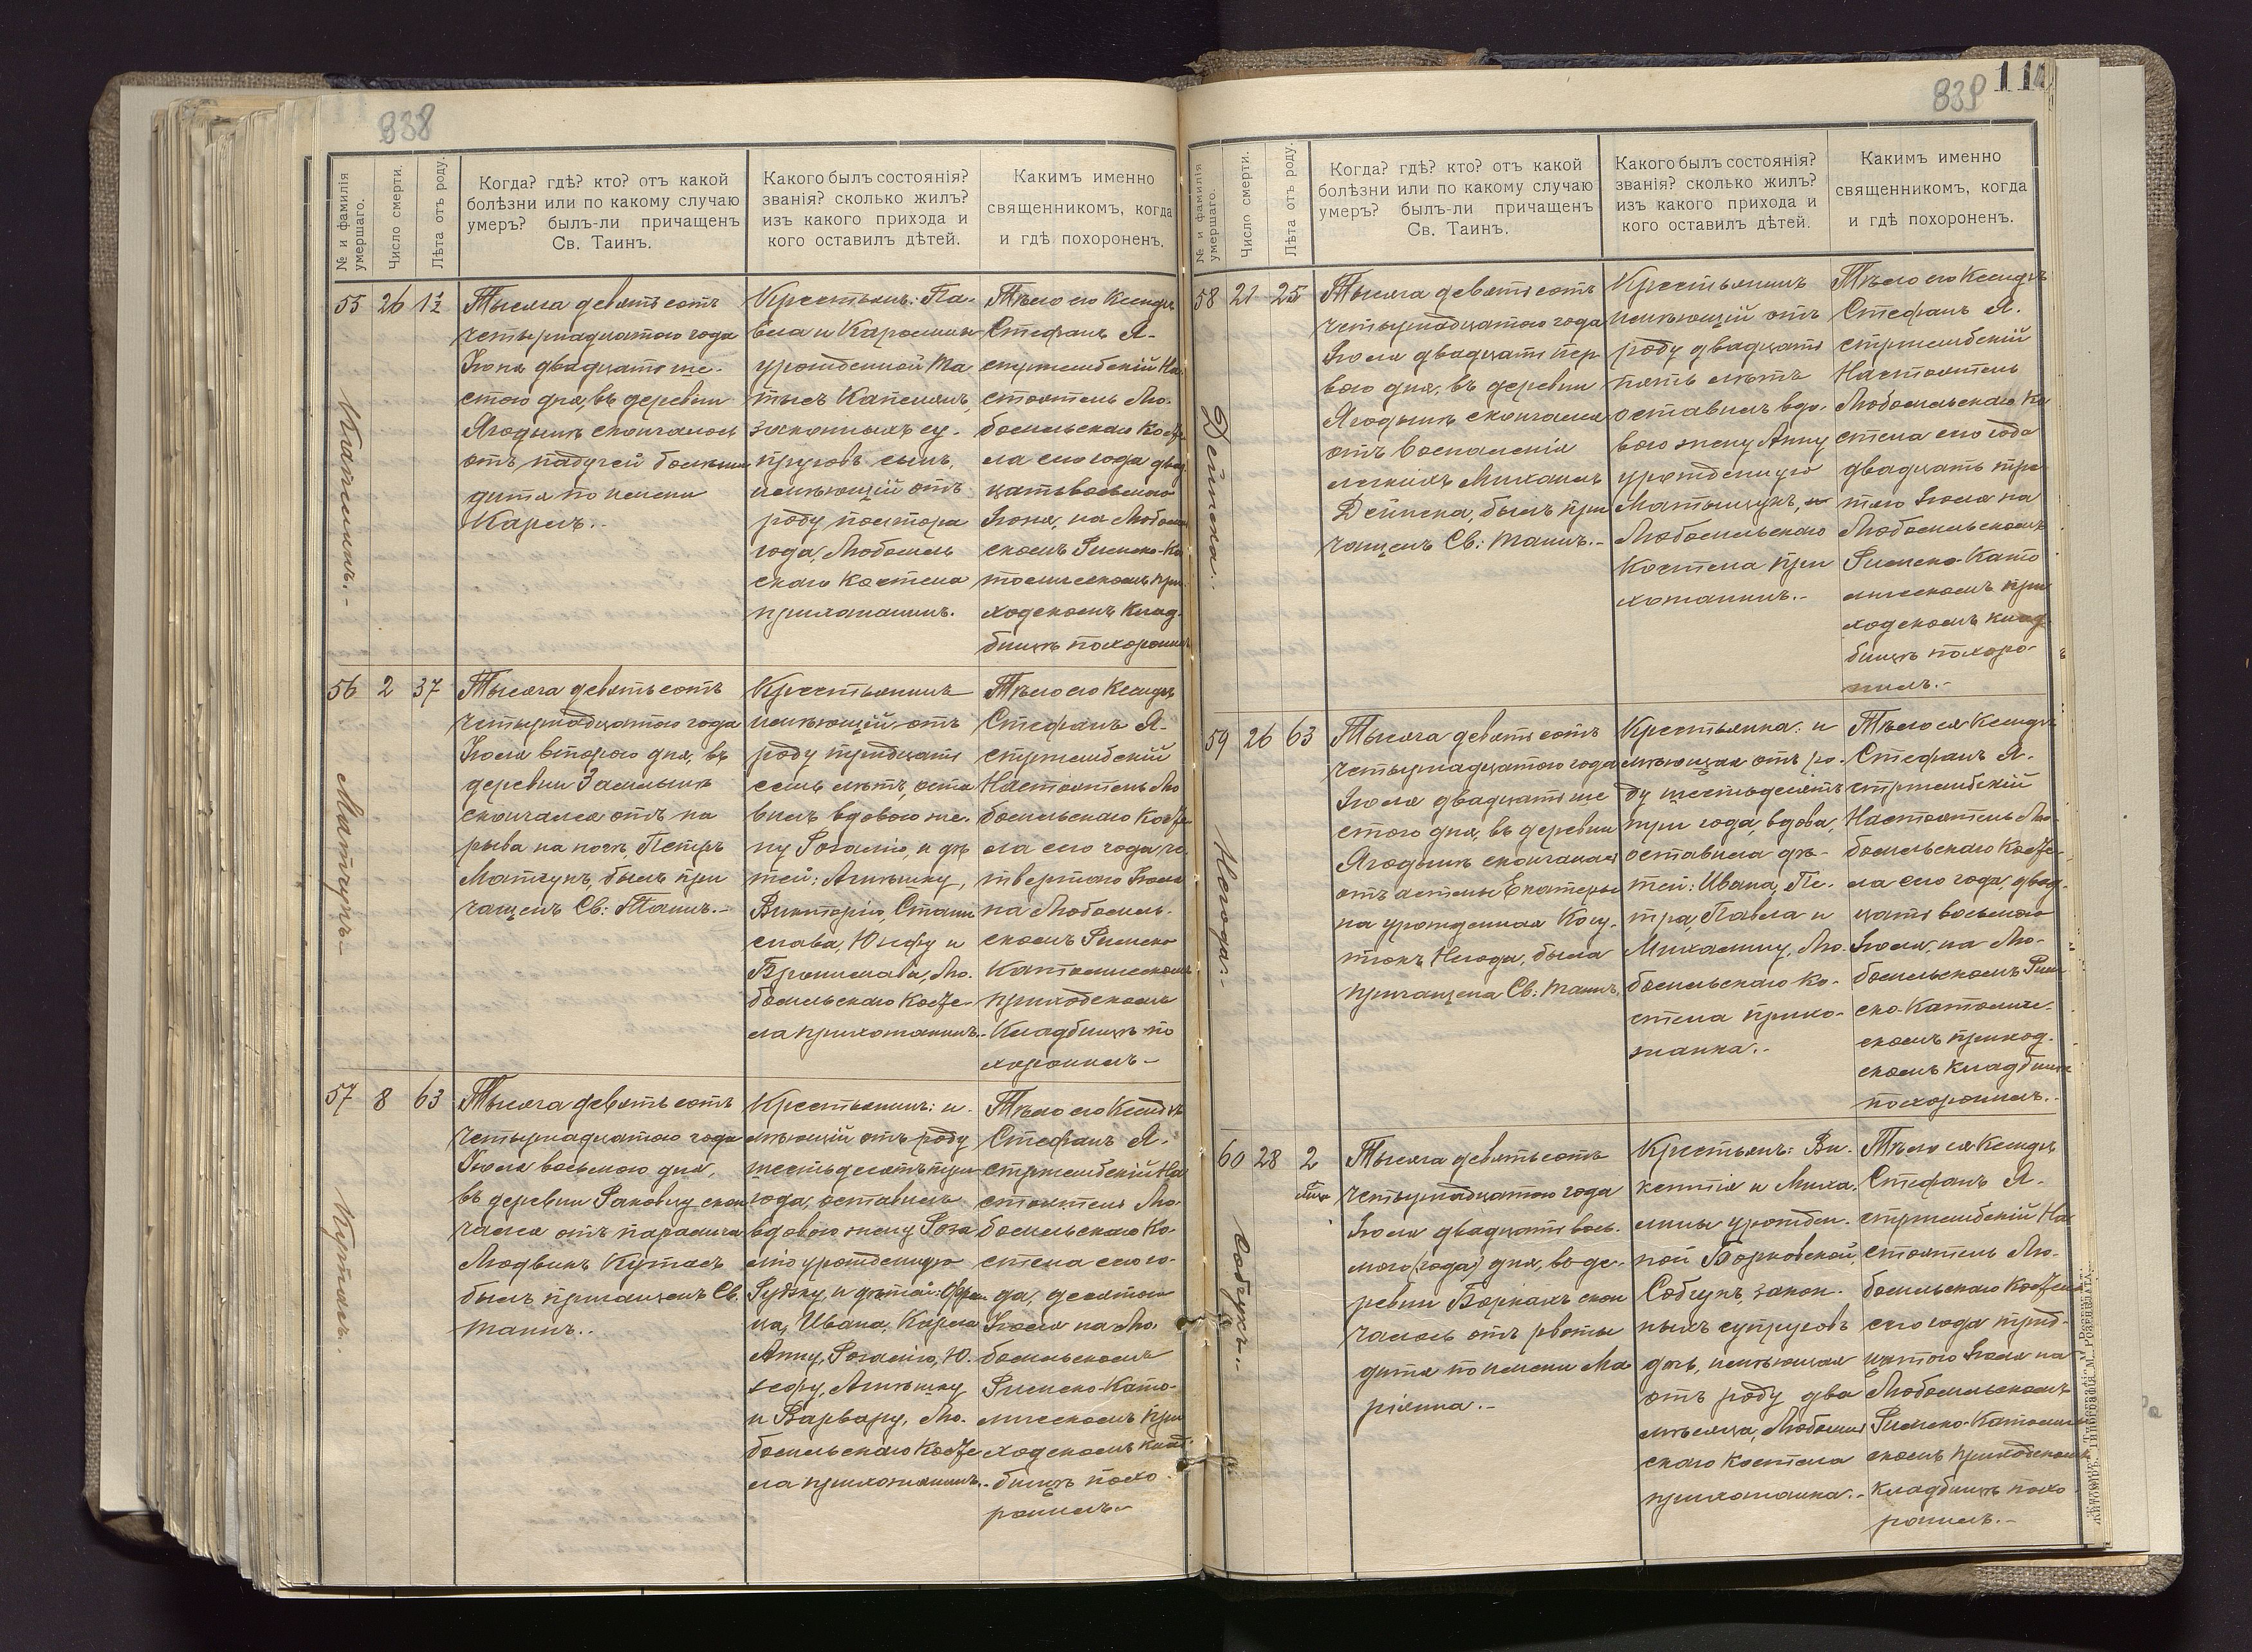 838
№ и фамилія умершаго.
Число смерти.
Лѣта отъ роду.
Когда? гдѣ? кто? отъ какой
болѣзни или по какому случаю
умеръ? былъ-ли причащенъ
Св. Таинъ.
Какого былъ состоянія?
званія? сколько жилъ?
изъ какого прихода и
кого оставилъ дѣтей.
Какимъ именно
священникомъ, когда
и гдѣ похороненъ.
55 26 1½
Тысяча девятьсотъ
четырнадцатого года
Іюня двадцать ше-
стого дня, въ деревни
Ягодынъ скончалось
отъ падучей болѣзни
дитя по имени
Карлъ.-
Крестьянъ: Па-
вла и Каролины
урожденной Ма
тысъ
законныхъ су-
пруговъ сынъ,
имѣющій отъ
роду полтора
года, Любомль
скаго Костела
прихожанинъ.
Тѣло его Ксендзъ
Стефанъ Я-
стржембскій На-
стоятель Лю-
бомльскаго Косте
ла сего года двад
цать восьмого
Іюня, на Любомль
скомъ Римско-Ка
толическомъ при-
ходскомъ Клад-
бищѣ похоронилъ
56 2 37
Матчукъ-
Тысяча девятьсотъ
четырнадцатого года
Іюля второго дня, въ
деревни Замлынѣ
скончался отъ на
рыва на ногѣ, Петръ
Матчукъ, былъ при
чащенъ Св: Таинъ.-
Крестьянинъ
имѣющій отъ
роду тридцать
семь лѣтъ, оста
вилъ вдовою же-
ну Розалію, и дѣ
тей: Агнѣшку,
Викторію, Стани
слава, Юзефу и
Бронислава, Лю-
бомльскаго Косте-
ла прихожанинъ.-
Тѣло его Ксендзъ
Стефанъ Я-
стржембскій
Настоятель Лю
бомльскаго Косте
ла сего года че-
твертого Іюля
на Любомль-
скомъ Римско
Католическомъ
приходскомъ
Кладбищѣ по
хоронилъ-
57 8 63
Тысяча девятьсотъ
четырнадцатого года
Іюля восьмого дня,
въ деревни Раковцу скон
чался отъ паралича
Людвикъ
былъ причащенъ Св.
Таинъ..
Крестьянинъ: и-
мѣющій отъ роду
шестьдесятъ три
года, оставилъ
вдовою жену Роза
лію урожденную
и дѣтей:
Ивана, Карла
Анну, Розалію, Ю-
зефу, Агнѣшку
и Варвару, Лю-
бомльскаго Косте
ла прихожанинъ.-
Тѣло его Ксендзъ
Стефанъ Я-
стржембскій На
стоятель Лю-
бомльскаго Ко-
стела сего го-
да, десятого
Іюля на Лю-
бомльскомъ
Римско-Като-
лическомъ при
ходскомъ Клад-
бищѣ похо
ронилъ-
839
114
№ и фамилія умершаго.
Число смерти.
Лѣта отъ роду.
Когда? гдѣ? кто? отъ какой
болѣзни или по какому случаю
умеръ? былъ-ли причащенъ
Св. Таинъ.
Какого былъ состоянія?
званія? сколько жилъ?
изъ какого прихода и
кого оставилъ дѣтей.
Какимъ именно
священникомъ, когда
и гдѣ похороненъ.
58 21 25
Дейнека.
Тысяча девятьсотъ
четырнадцатого года
Іюля двадцать пер
вого дня, въ деревни
Ягодынѣ скончался
отъ воспаленія
легкихъ Михаилъ
Дейнека, былъ при
чащенъ Св: Таинъ.-
Крестьянинъ
имѣющій отъ
роду двадцать
пять лѣтъ
оставилъ вдо-
вою жену Анну
урожденную
Любомльскаго
Костела при
хожанинъ.-
Тѣло его Ксендзъ
Стефанъ Я-
стржембскій
Настоятель
Любомльскаго Ко
стела сего года
двадцать тре
тяго Іюля на
Любомльскомъ
Римско-Като
лическомъ при
ходскомъ клад-
бищѣ похоро-
нилъ.-
59 26 63
Негода.-
Тысяча девятьсотъ
четырнадцатого года
Іюля двадцать ше
стого дня, въ деревни
Ягодынѣ скончалась
отъ астмы Екатери
на урожденная
Негода, была
причащена Св: Таинъ.
Крестьянка: и
мѣющая отъ ро-
ду шестьдесятъ
три года, вдова,
оставила дѣ-
тей: Ивана, Пе-
тра, Павла и
Михалину, Лю-
бомльскаго Ко-
стела прихо-
жанка.-
Тѣло ея Ксендзъ
Стефанъ Я-
стржембскій
Настоятель Лю-
бомльскаго Косте-
ла сего года, двад-
цать восьмого
Іюля, на Лю-
бомльскомъ Рим
ско-Католиче-
скомъ приход-
скомъ кладбищѣ
похоронилъ.-
60 28 2
Собчукъ..
Тысяча девятьсотъ
четырнадцатого года
Іюля двадцать вось-
мого (года) дня, въ де-
ревни Боркахъ скон
чалось отъ рвоты
дитя по имени Ма
ріянна.-
Крестьянъ: Ви-
кентія и Миха-
лины урожден-
ной Борковской,
Собчукъ, закон-
ныхъ супруговъ
дочь, имѣющая
отъ роду два
мѣсяца, Любомль
скаго Костела
прихожанка.-
Тѣло ея Ксендзъ
Стефанъ Я-
стржембскій На
стоятель Лю-
бомльскаго Костела
сего года трид-
цятого Іюля на
Любомльскомъ
Римско-Католиче
скомъ приходскомъ
кладбищѣ похо
ронилъ.-